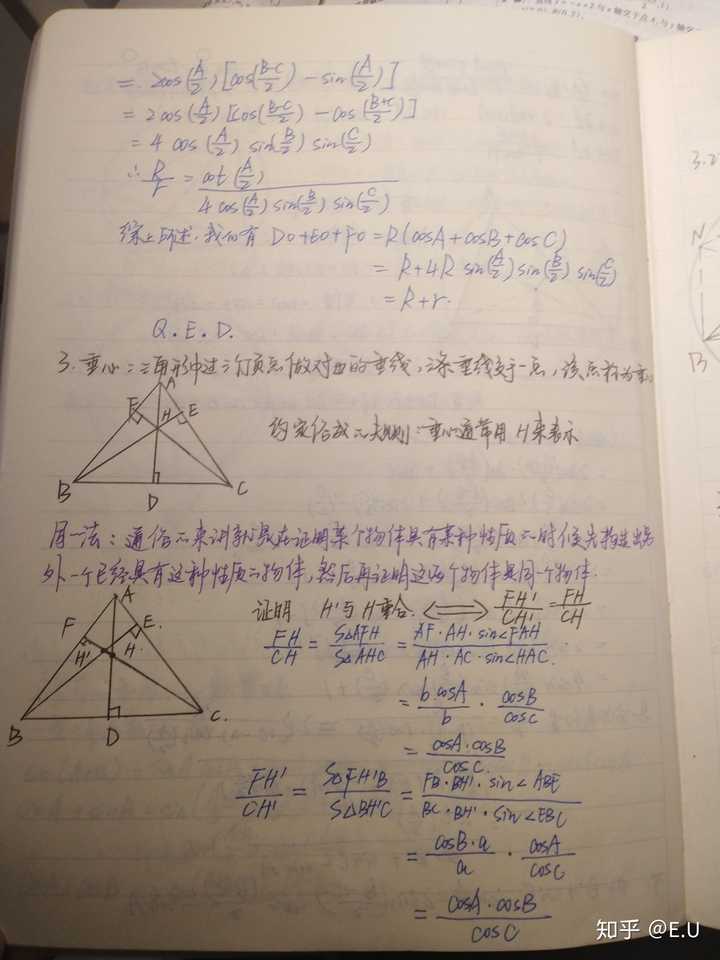 = 2cos(A/2)[cos(B-C/2) - sin(A/2)]
= 2cos(A/2)[cos(B-C/2) - cos(B+C/2)]
= 4 cos(A/2) sin(B/2) sin(C/2)
∴ R/r = cot(A/2) / 4cos(A/2) sin(B/2) sin(C/2)
综上所述, 我们有 DO+EO+FO = R(cosA+cosB+cosC)
= R+4R sin(A/2) sin(B/2) sin(C/2)
= R+r.
Q.E.D.
3. 垂心:三角形中过三个顶点做对边的垂线,三条垂线交于一点,该点称为垂心
A
F H E
约定俗成的规则:垂心通常用 H 来表示
B D C
同一法:通俗的来讲就是在证明某个物体具有某种性质的时候先构造出另
外一个已经具有这种性质的物体,然后再证明这两个物体是同一个物体.
A
证明 H'与H重合. ⟺ FH'/CH' = FH/CH
F E.
H' H
FH/CH = S△AFH/S△AHC = AF·AH·sin∠FAH / AH·AC·sin∠HAC.
= b·cosA/b · cosB/cosC
B D C.
= cosA·cosB/cosC.
FH'/CH' = S△FH'B/S△BH'C = FB·BH'·sin∠ABE / BC·BH'·sin∠EBC
= cosB·a/a · cosA/cosC
= cosA·cosB/cosC
知乎 @E.U
3.2
N
B